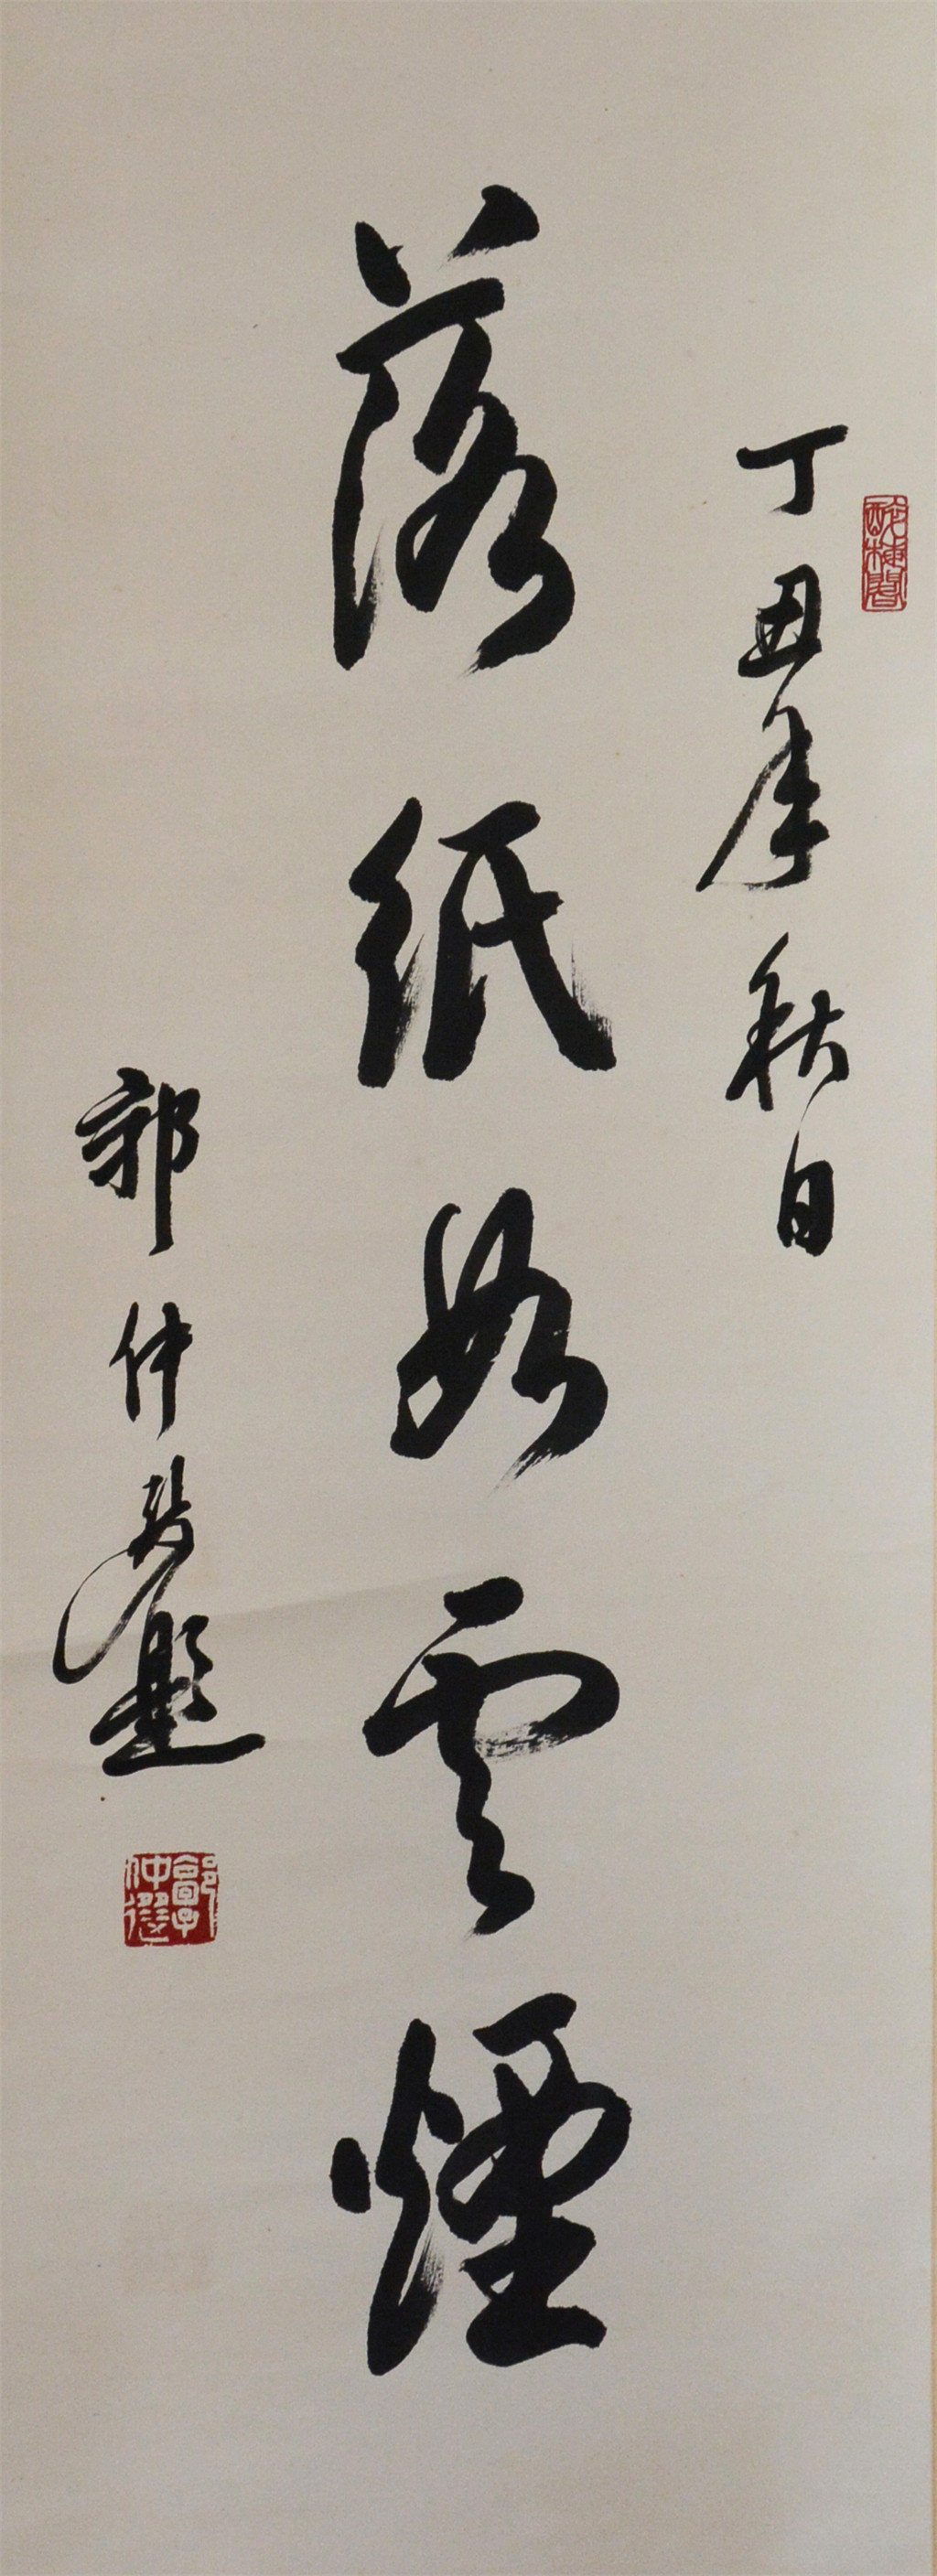 丁丑年秋日
落紙如雲煙
郭仲選題
郭仲選